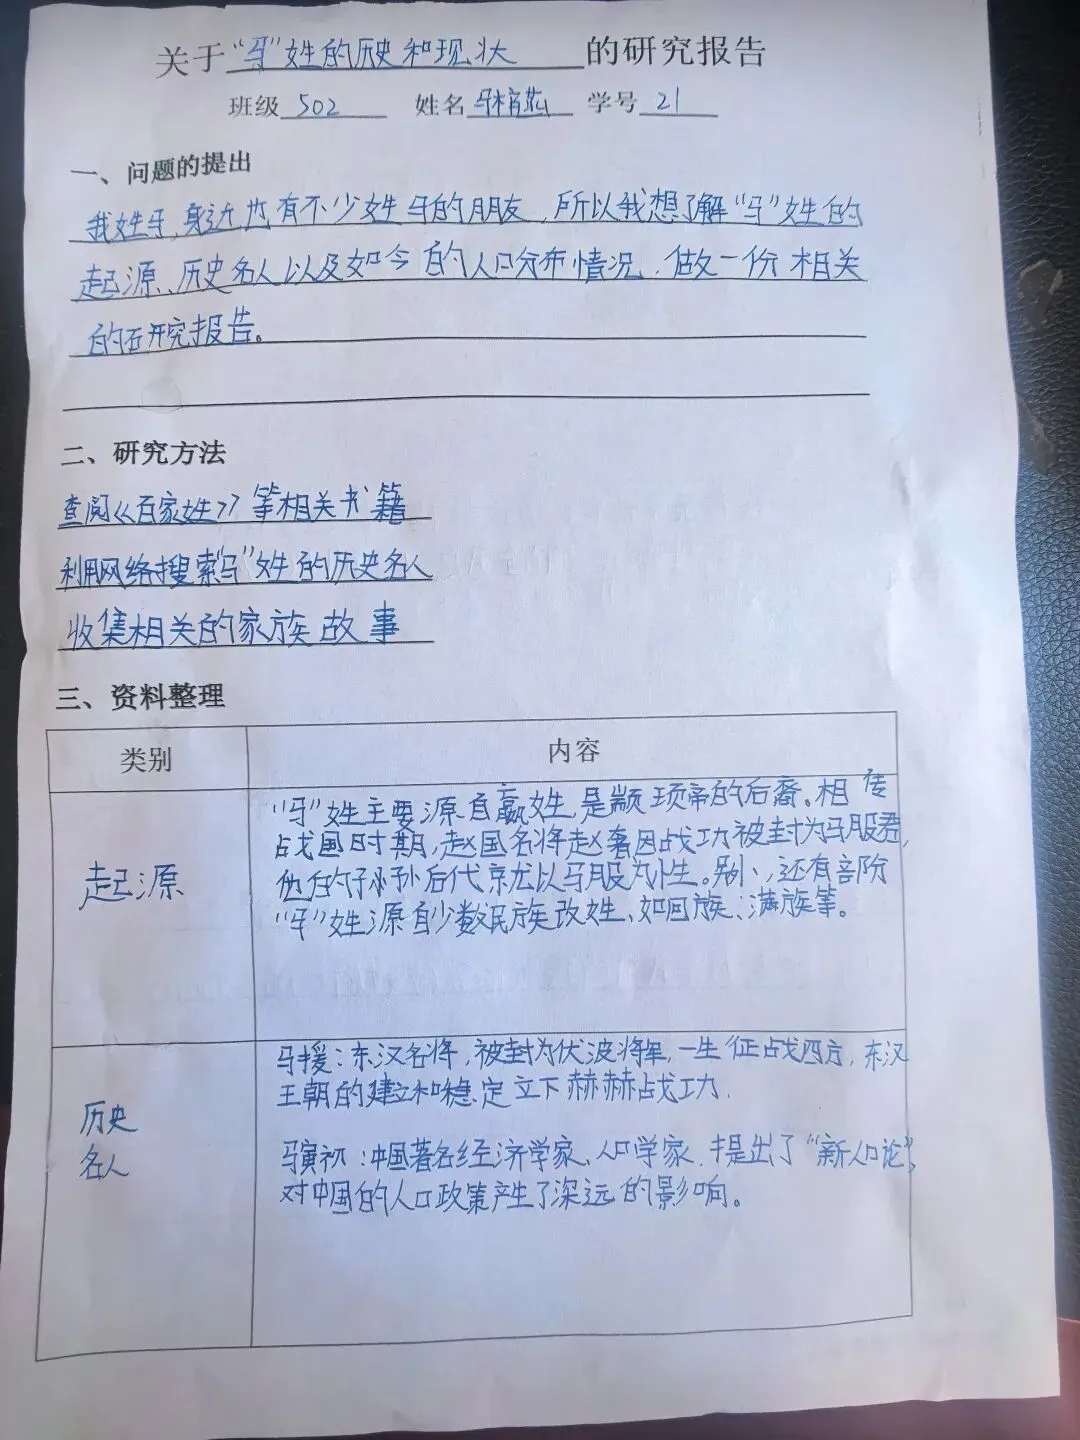 关于“马”姓的历史和现状的研究报告
班级 502 姓名 马 学号 21
一、问题的提出
我姓马,身边也有不少姓马的朋友,所以我想了解“马”姓的
起源、历史名人以及如今的人口分布情况,做一份相关
的研究报告。
二、研究方法
查阅《百家姓》等相关书籍
利用网络搜索“马”姓的历史名人
收集相关的家族故事
三、资料整理
类别 内容
起源
“马”姓主要源自嬴姓,是颛顼帝的后裔。相传
战国时期,赵国名将赵奢因战功被封为马服君,
他的子孙后代就以马服为姓。另外,还有部份
“马”姓源自少数民族改姓、如回族、满族等。
历史
名人
马援:东汉名将,被封为伏波将军,一生征战四方,东汉
王朝的建立和稳定立下赫赫战功.
马寅初:中国著名经济学家、人口学家,提出了“新人口论”,
对中国的人口政策产生了深远的影响。